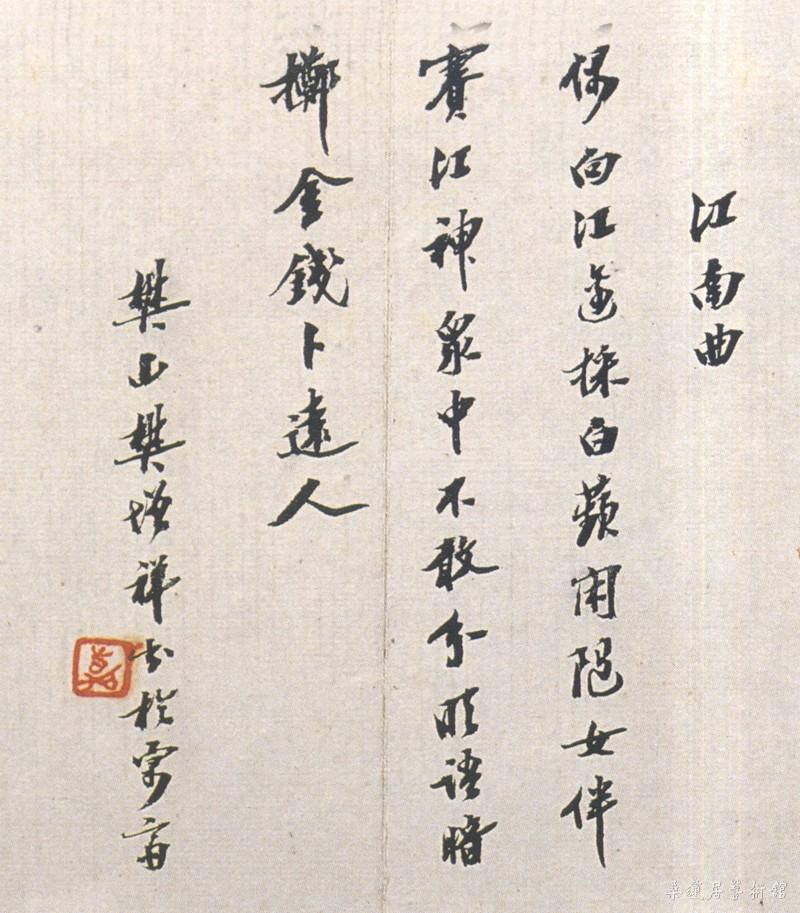 江南曲
偶向江邊採白蘋閑隨女伴
賽江神衆中不敢分明語暗
擲金錢卜遠人
樊山樊增祥书於
蓮居藝術館